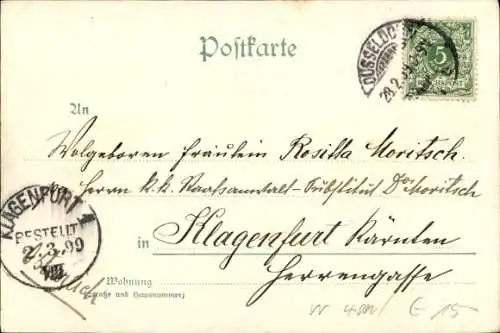 Postkarte
DÜSSELDORF
28.2.99
5
REICHSPOST
An
Wolgeboren Fräulein Rositta Moritsch.
Herrn K. K. Staatsanwalt-Substitut Dr Moritsch
KLAGENFURT 1
BESTELLT
2.3.99
VIII
in Klagenfurt Kärnten
Wohnung
(Straße und Hausnummer)
Herrengasse